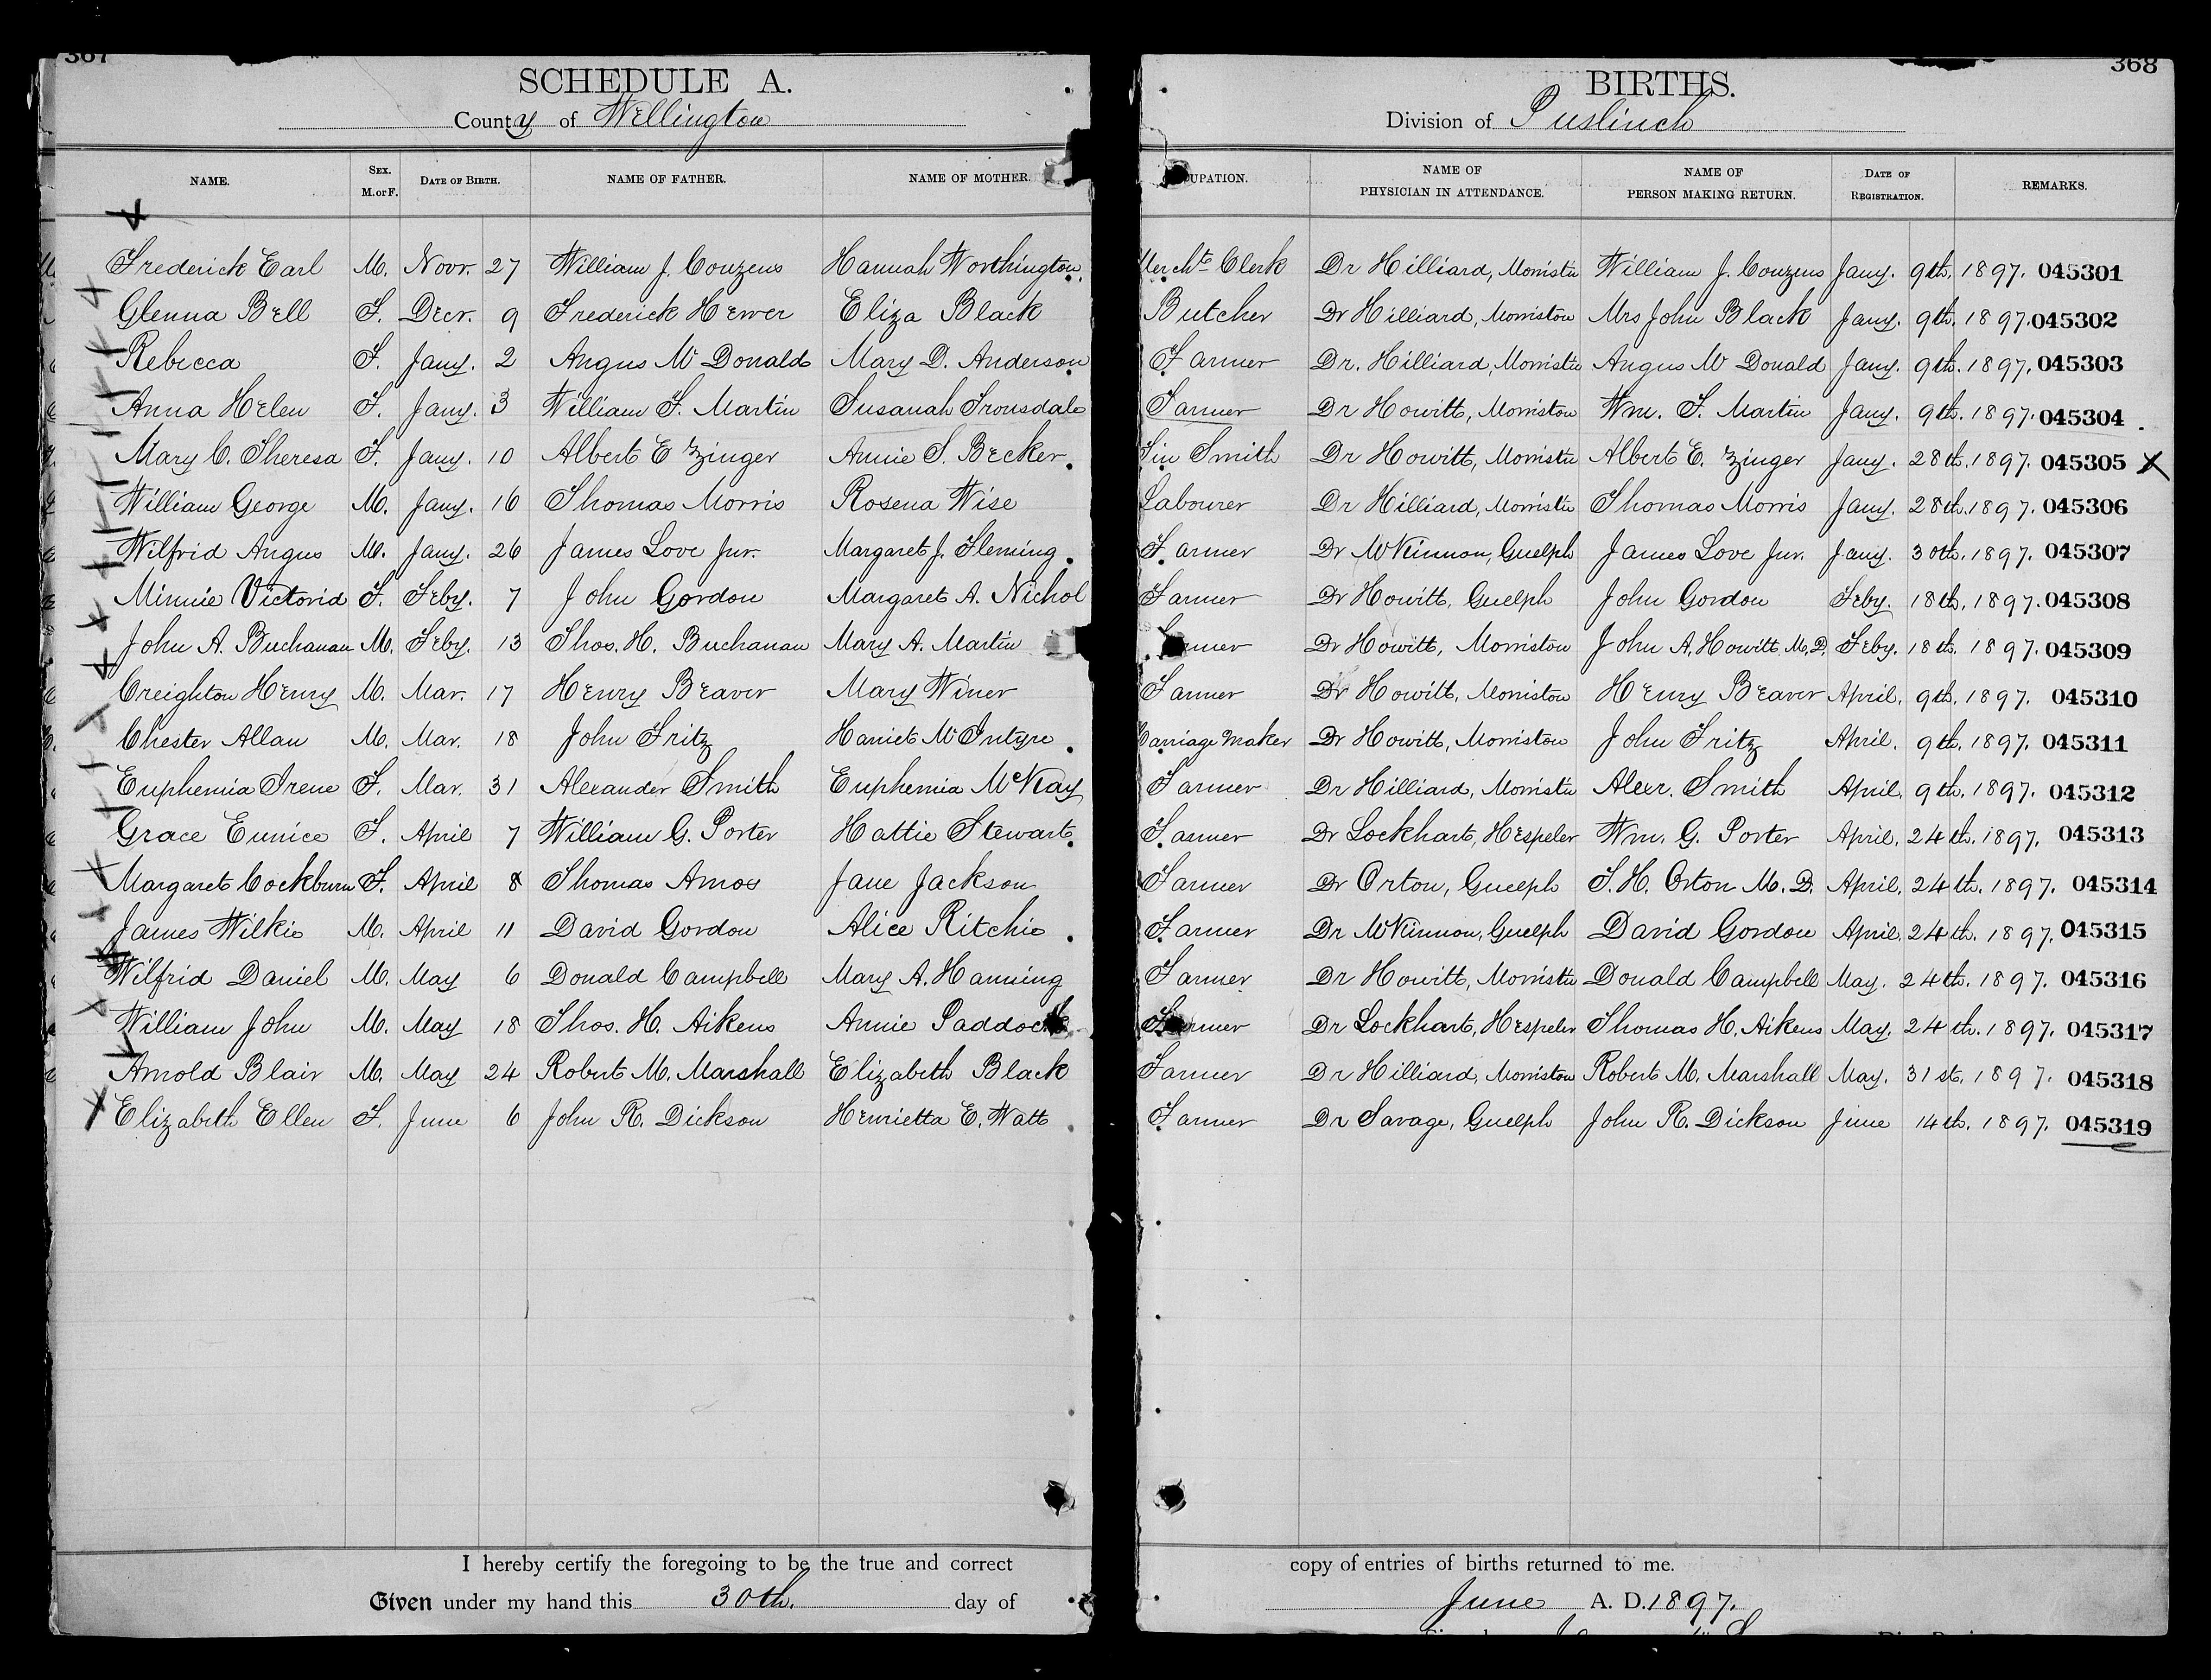 367
SCHEDULE A.
County of Wellington
NAME. SEX. M. or F. DATE OF BIRTH. NAME OF FATHER. NAME OF MOTHER.
368
BIRTHS.
Division of Puslinch
UPATION. NAME OF PHYSICIAN IN ATTENDANCE. NAME OF PERSON MAKING RETURN. DATE OF REGISTRATION. REMARKS.
Frederick Earl M. Novr. 27 William J. Couzens Hannah Worthington Mercht Clerk Dr Hilliard, Morriston William J. Couzens Jany. 9th. 1897. 045301
Glenna Bell F. Decr. 9 Frederick Hewer Eliza Black Butcher Dr Hilliard, Morriston Mrs John Black Jany. 9th. 1897. 045302
Rebecca F. Jany. 2 Angus McDonald Mary D. Anderson Farmer Dr. Hilliard, Morriston Angus McDonald Jany. 9th. 1897. 045303
Anna Helen F. Jany. 3 William F. Martin Susanah Trousdale Farmer Dr Howitt, Morriston Wm. F. Martin Jany. 9th. 1897. 045304
Mary C. Theresa F. Jany. 10 Albert E Zinger Annie S. Becker Tin Smith Dr Howitt, Morriston Albert E. Zinger Jany. 28th. 1897. 045305 X
William George M. Jany. 16 Thomas Morris Rosena Wise Labourer Dr Hilliard, Morriston Thomas Morris Jany. 28th. 1897. 045306
Wilfrid Angus M. Jany. 26 James Love Jur. Margaret J. Fleming Farmer Dr McKinnon, Guelph James Love Jur. Jany. 30th. 1897. 045307
Minnie Victoria F. Feby. 7 John Gordon Margaret A. Nichol Farmer Dr Howitt, Guelph John Gordon Feby. 18th. 1897. 045308
John A. Buchanan M. Feby. 13 Thos. H. Buchanan Mary A. Martin Farmer Dr Howitt, Morriston John A. Howitt M.D. Feby. 18th. 1897. 045309
Creighton Henry M. Mar. 17 Henry Beaver Mary Winer Farmer Dr Howitt, Morriston Henry Beaver April. 9th. 1897. 045310
Chester Allan M. Mar. 18 John Fritz Harriet McIntyre Carriage Maker Dr Howitt, Morriston John Fritz April. 9th. 1897. 045311
Euphemia Irene F. Mar. 31 Alexander Smith Euphemia McKay Farmer Dr Hilliard, Morriston Alexr. Smith April. 9th. 1897. 045312
Grace Eunice F. April 7 William G. Porter Hattie Stewart Farmer Dr Lockhart, Hespeler Wm. G. Porter April. 24th. 1897. 045313
Margaret Cockburn F. April 8 Thomas Amos Jane Jackson Farmer Dr Orton, Guelph T. H. Orton M. D. April. 24th. 1897. 045314
James Wilkie M. April 11 David Gordon Alice Ritchie Farmer Dr McKinnon, Guelph David Gordon April. 24th. 1897. 045315
Wilfrid Daniel M. May 6 Donald Campbell Mary A. Hanning Farmer Dr Howitt, Morriston Donald Campbell May. 24th. 1897. 045316
William John M. May 18 Thos. H. Aikens Annie Paddock Farmer Dr Lockhart, Hespeler Thomas H. Aikens May. 24th. 1897. 045317
Arnold Blair M. May 24 Robert M. Marshall Elizabeth Black Farmer Dr Hilliard, Morriston Robert M. Marshall May. 31st. 1897. 045318
Elizabeth Ellen F. June 6 John R. Dickson Henrietta E. Watt Farmer Dr Savage, Guelph John R. Dickson June 14th. 1897. 045319
I hereby certify the foregoing to be the true and correct copy of entries of births returned to me.
Given under my hand this 30th. day of June A. D. 1897.